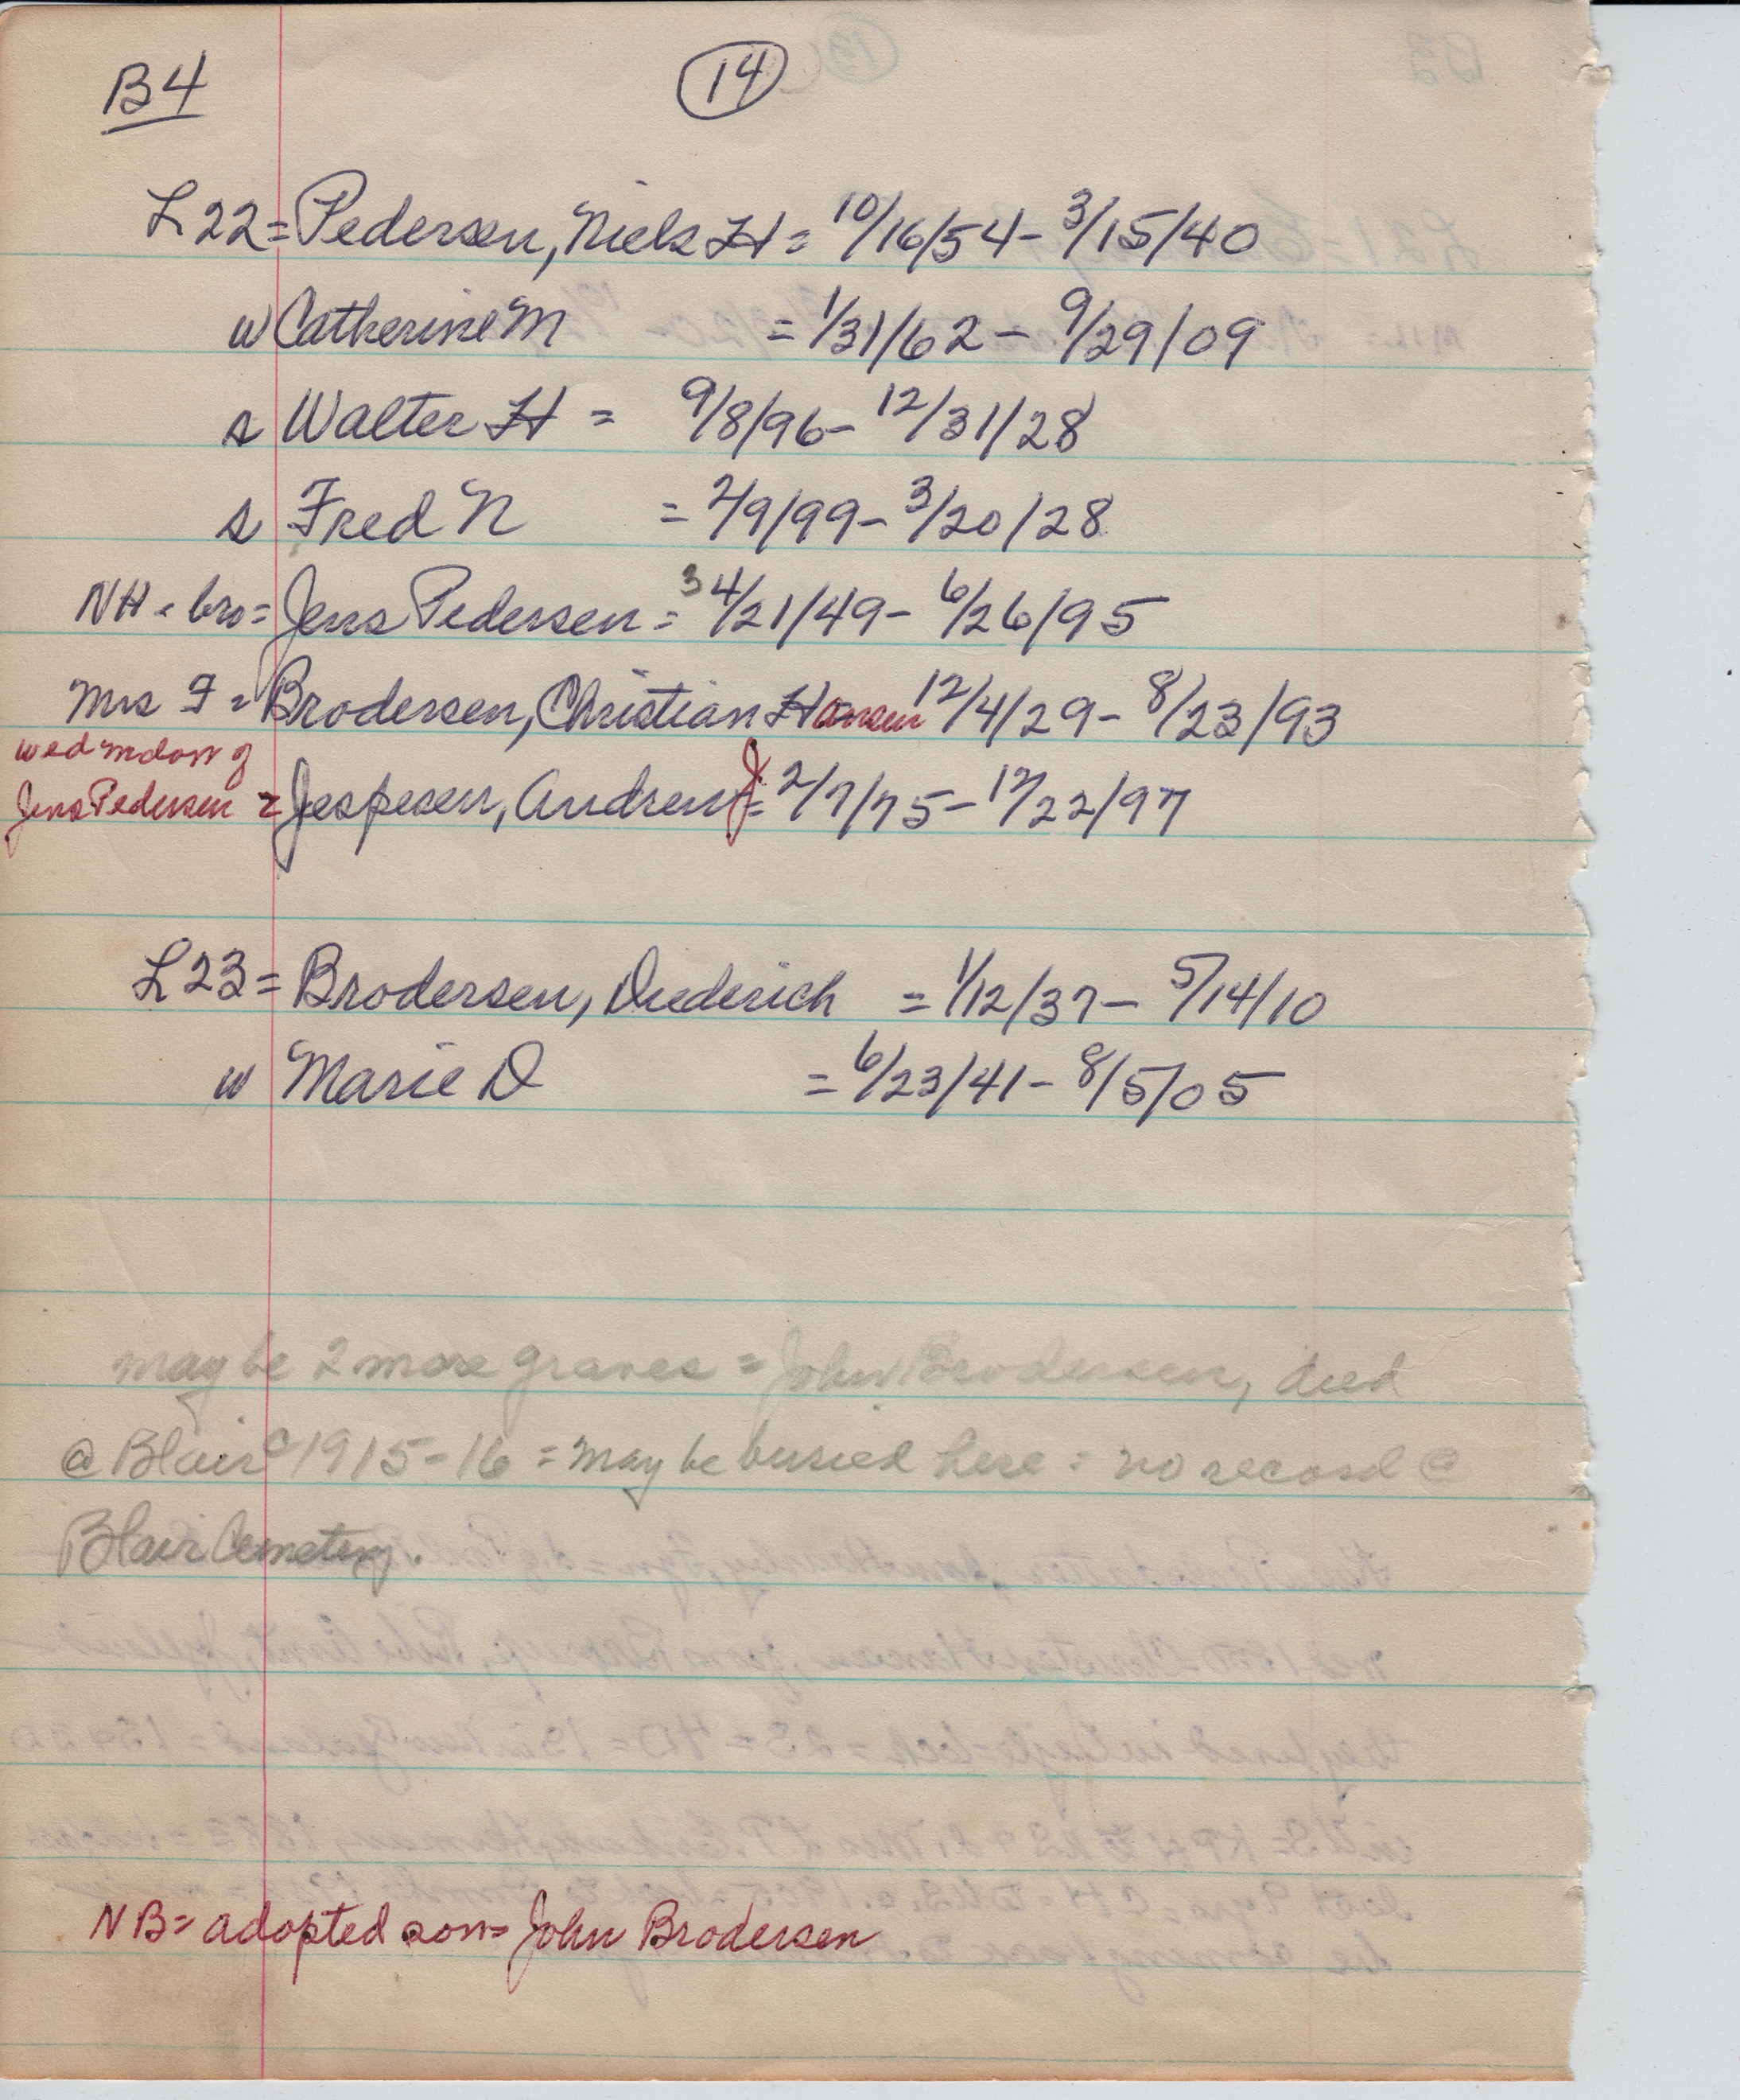 B4 (14)
L22 = Pedersen, Niels H = 10/16/54 - 3/15/40
w Catherine M = 1/31/62 - 9/29/09
s Walter H = 9/8/96 - 12/31/28
s Fred N = 2/9/99 - 3/20/28
NH's bro = Jens Pedersen = 3 4/21/49 - 6/26/95
Mrs F = Brodersen, Christian Hansen 12/4/29 - 8/23/93
wed
Jens Pedersen = Jespesen, Andrew J = 2/7/75 - 12/22/97
L23 = Brodersen, Diederich = 1/12/37 - 5/14/10
w Marie D = 6/23/41 - 8/5/05
may be 2 more graves = John Brodersen, died
@ Blair c 1915-16 = may be buried here = no record @
Blair Cemetery.
NB = adopted son = John Brodersen